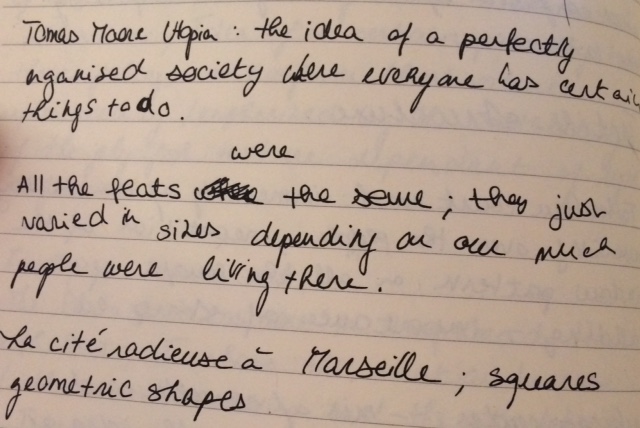 Tomas Moore Utopia : the idea of a perfectly
organised society where everyone has certain
things to do.
were
All the feats the same ; they just
varied in sizes depending on our much
people were living there.
La cité radieuse à Marseille ; squares
geometric shapes